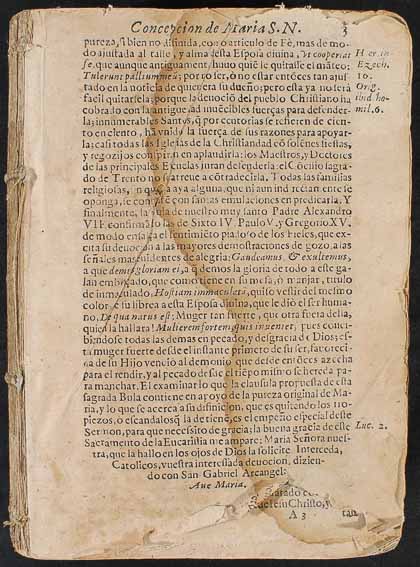 Concepcion de Maria S. N. 3
pureza, si bien no difinida, con o articulo de Fè, mas de modo
ajustada al talle, y alma desta Esposa divina, Vt cooperiat
se, que aunque antiguamente huuo quiē le quitasse el manto:
Tulerunt pallium meū; por no ser, ò no estar entōces tan ajustado
en la noticia de que era su dueño; pero esta ya no serà
facil quitarsela; porque la deuociō del pueblo Christiano ha
cobrado con la antigue, ad inuēcibles fuerças para defenderla;
innumerables Santos, q por centurias se refieren de ciento
en ciento, hā vnido la fuerça de sus razones para apoyarla;
casi todas las Iglesias de la Christiandad cō solēnes fiestas,
y regozijos compiten en aplaudirla; los Maestros, y Doctores
de las principales Escuelas juran defenderla: el Cōcilio sagrado
de Trento no se atreue a cōtradezirla. Todas las familias
religiosas, sin que aya alguna, que ni aun indirectamente se
oponga, compitē con santas emulaciones en predicarla. Y
finalmente, la Bula de nuestro muy santo Padre Alexandro
VII. confirmādo las de Sixto IV. Paulo V. y Gregorio XV.
de modo ensalça el sentimiēto piadoso de los Fieles, que excita
su deuocion a las mayores demostraciones de gozo, a las
señales mas euidentes de alegria: Gaudeamus, & exultemus,
a que demos gloriam ei, a q demos la gloria de todo a este galan
embozado, que como tiene en su mesa, ò manjar, titulo
de inmaculado, Hostiam immaculatā, quiso vestir del mesmo
color, de su librea a esta Esposa diuina, que le diò el ser humano,
De qua natus est; Muger tan fuerte, que otra fuera della,
quien la hallara! Mulierem fortem quis inueniet, pues concibiendose
todas las demas en pecado, y desgracia de Dios; esta
muger fuerte desde el instante primero de su ser, fauorecida
de su Hijo venciò al demonio que desde entōces azecha
para el rendir, y al pecado desde el tiēpo mismo se hereda para
manchar. El examinar lo que la clausula propuesta desta
sagrada Bula contiene en apoyo de la pureza original de Maria,
y lo que se acerca a su difinicion, que es quitando los tropiezos,
o escandalos q la detienē, es el empeño especial deste
Sermon, para que necessito de gracia; la buena gracia de este
Sacramento de la Eucaristia me ampare: Maria Señora nuestra,
que la hallo en los ojos de Dios la solicite. Interceda,
Catolicos, vuestra interessada deuocion, diziendo
con San Gabriel Arcangel:
Aue Maria.
A 3 tan
Hier. in
Ezech.
10.
Orig.
ibid ho-
mil. 6.
Luc. 2.